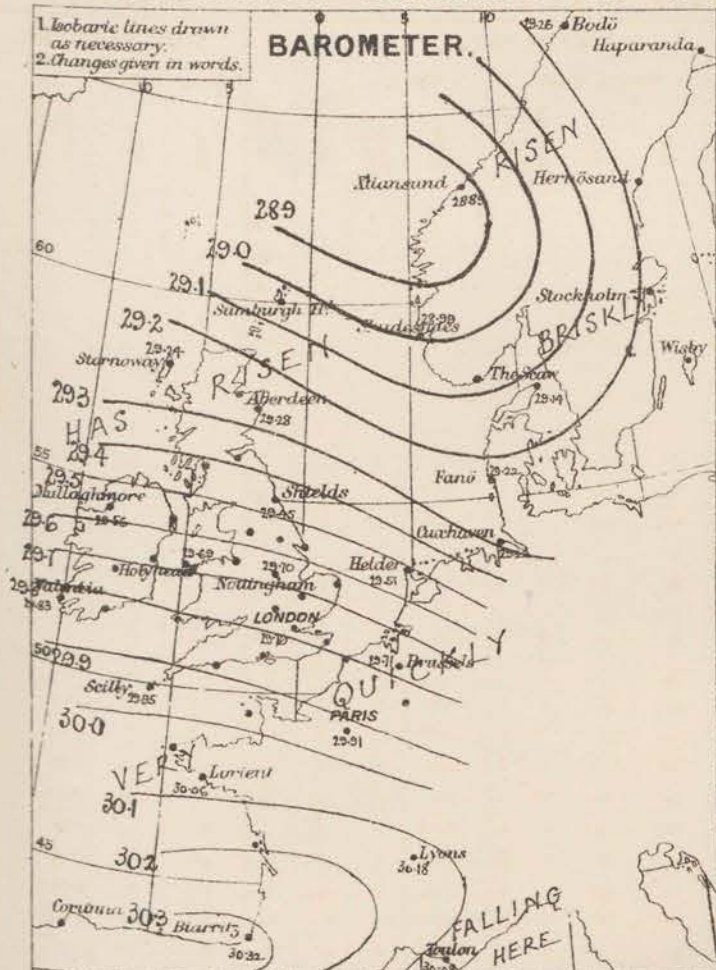 1. Isobaric lines drawn
as necessary.
2. Changes given in words.
BAROMETER.
0
5
10
10
5
29·26
Bodö
Haparanda
RISEN
Xtiansund
28·89
Hernösand
28·9
60
29·0
29·1
Sumburgh Hd.
28·90
Skudesnäes
Stockholm
BRISKLY
29·2
29·24
Stornoway
Wisby
The Scaw
29·14
RISEN
Aberdeen
29·28
29·3
HAS
29·4
55
29·5
Mullaghmore
29·56
Shields
29·45
Fanö
29·22
29·6
Cuxhaven
29·7
29·69
Holyhead
29·70
Nottingham
Helder
29·51
29·8
Valentia
29·83
LONDON
29·71
Brussels
QUICKLY
50
29·9
Scilly
29·95
PARIS
29·91
30·0
VERY
Lorient
30·06
30·1
45
30·2
Lyons
30·18
Corunna
30·3
Biarritz
30·32
FALLING
HERE
Toulon